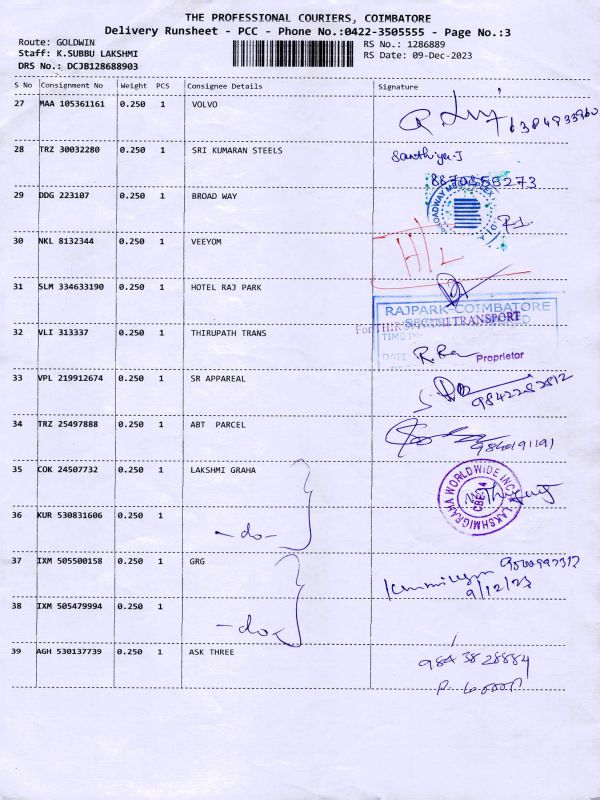 THE PROFESSIONAL COURIERS, COIMBATORE
Delivery Runsheet - PCC - Phone No.:0422-3505555 - Page No.:3
Route: GOLDWIN
RS No.: 1286889
Staff: K.SUBBU LAKSHMI
RS Date: 09-Dec-2023
DRS No.: DCJB128688903
S No Consignment No Weight PCS Consignee Details Signature
27 MAA 105361161 0.250 1 VOLVO
28 TRZ 30032280 0.250 1 SRI KUMARAN STEELS
Santhiya-J
8870855273
29 DDG 223107 0.250 1 BROAD WAY
30 NKL 8132344 0.250 1 VEEYOM
31 SLM 334633190 0.250 1 HOTEL RAJ PARK
RAJPARK-COIMBATORE
TRANSPORT
TIME IN
32 VLI 313337 0.250 1 THIRUPATH TRANS
DATE
Proprietor
33 VPL 219912674 0.250 1 SR APPAREAL
9842282812
34 TRZ 25497888 0.250 1 ABT PARCEL
35 COK 24507732 0.250 1 LAKSHMI GRAHA
LAKSHMIGRAHA WORLDWIDE INC
CBE-4
36 KUR 530831606 0.250 1
-do-
37 IXM 505500158 0.250 1 GRG
9/12/23
38 IXM 505479994 0.250 1
-do-
39 AGH 530137739 0.250 1 ASK THREE
9843828884